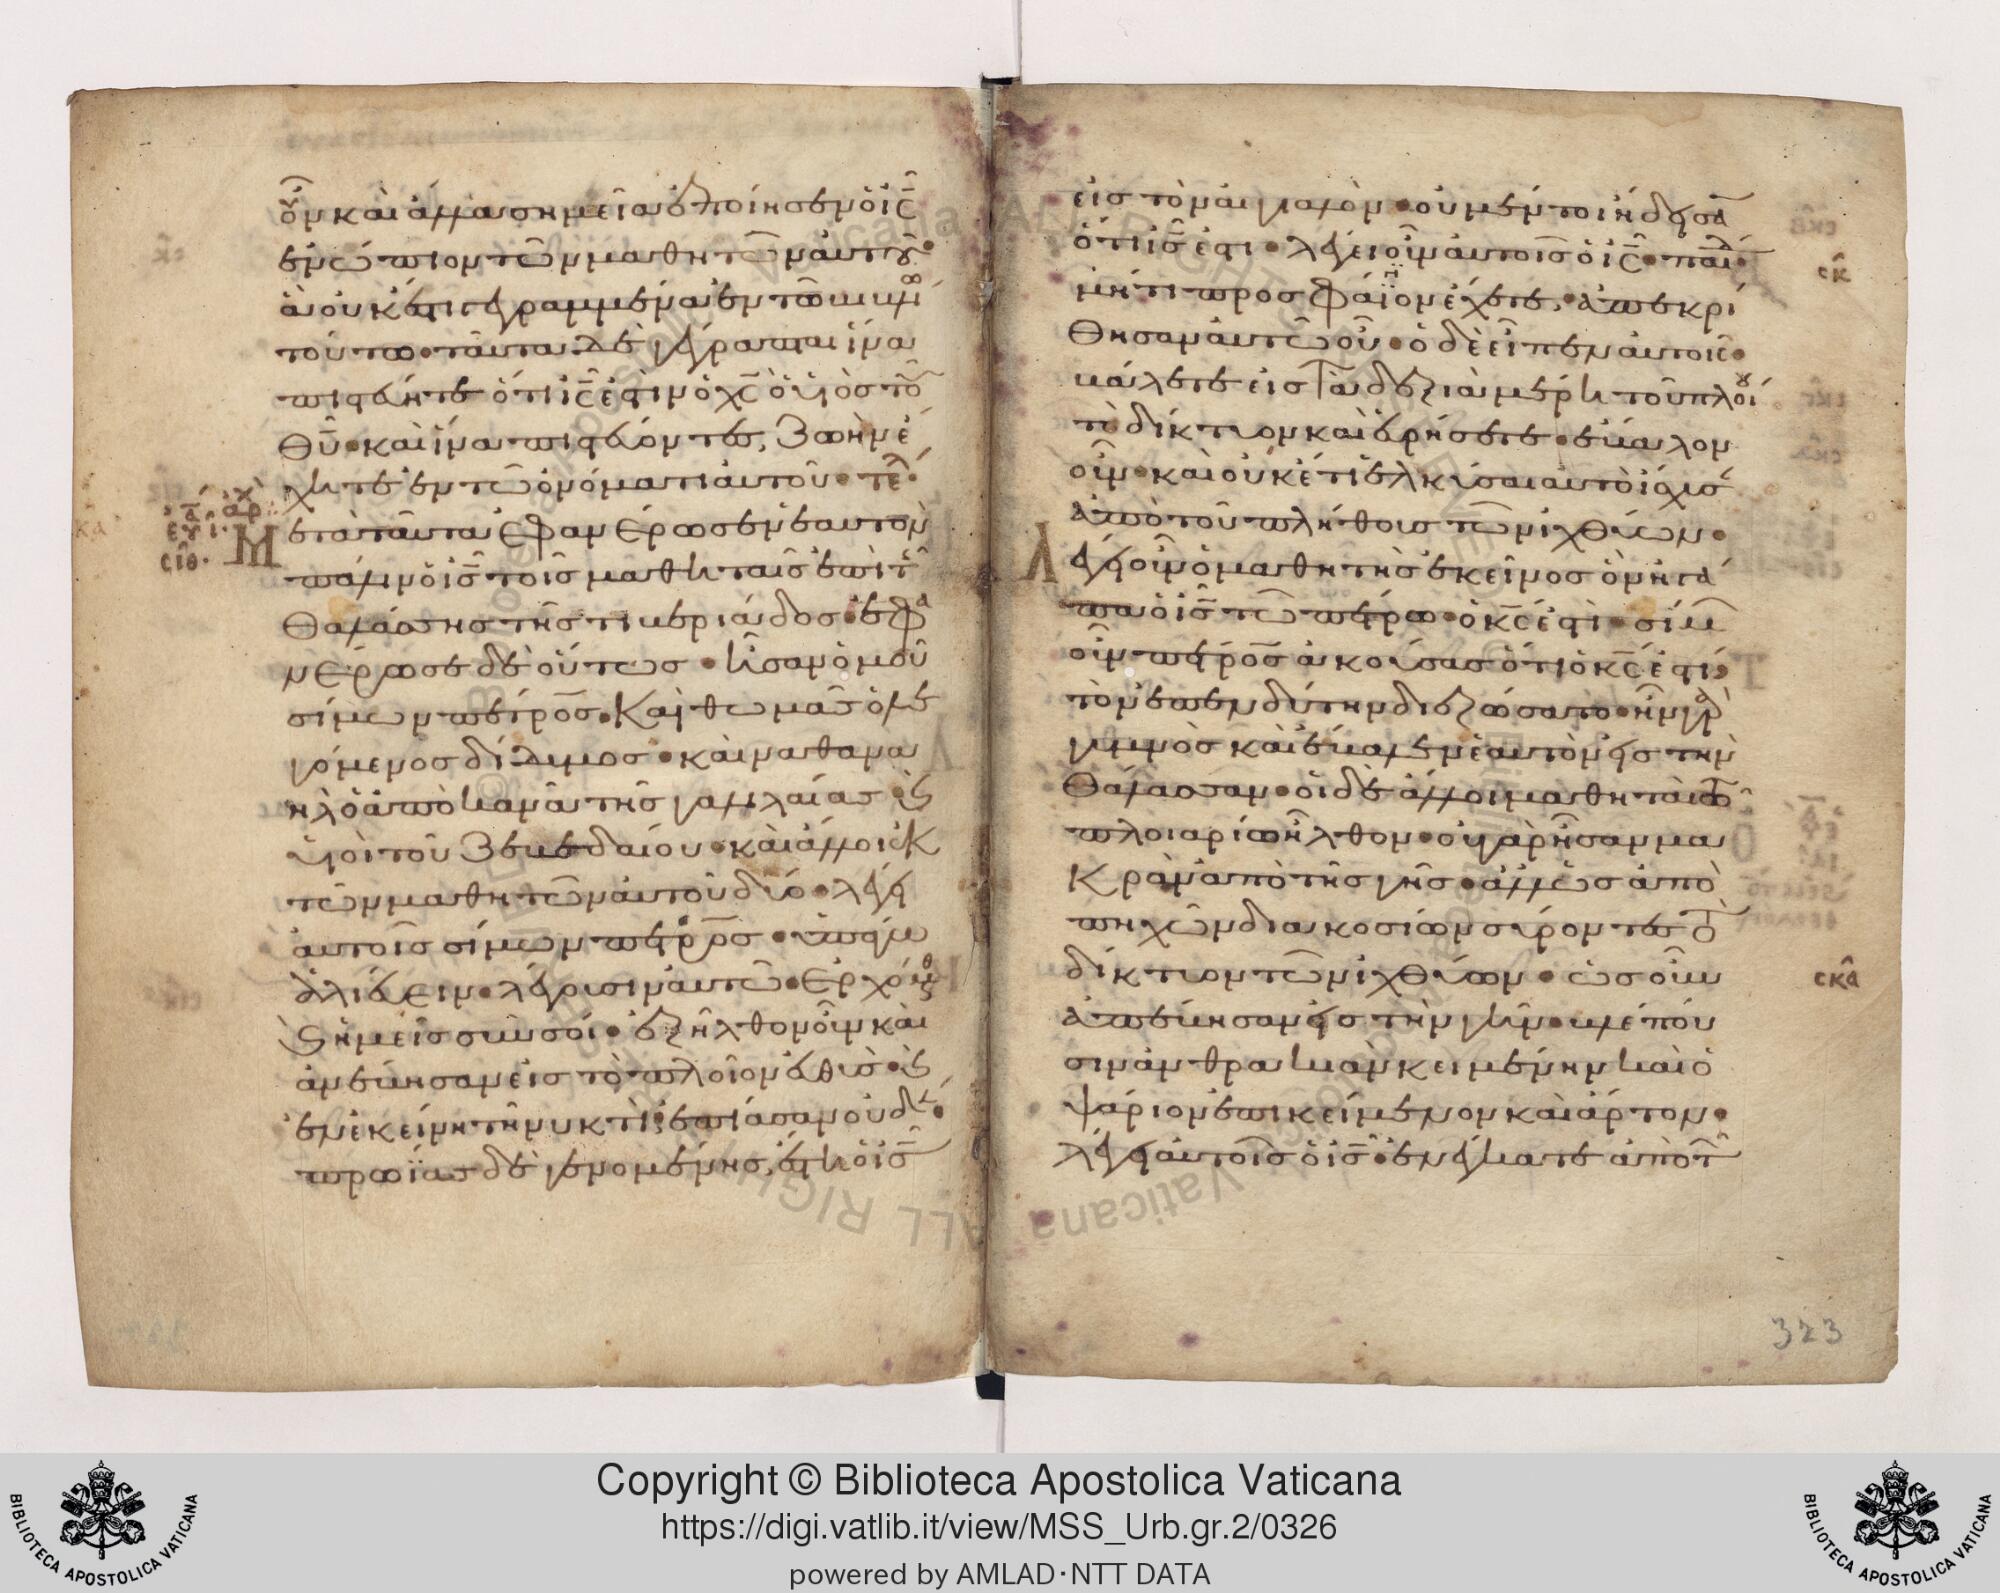 οὖν καὶ ἄλλα σημεῖα ἐποίησεν ὁ ις
ἐνώπιον τῶν μαθητῶν αὐτοῦ·
ἃ οὐκ ἔστι γεγραμμένα ἐν τῷ βιβλίῳ
τούτω· ταῦτα δὲ γέγραπται ἵνα
πιστεύσητε ὅτι ις ἐστιν ὁ χς ὁ υἱὸς τοῦ
θυ· καὶ ἵνα πιστεύοντες, ζωὴν ἔ
χητε ἐν τῶ ὀνόματι αὐτοῦ· τελ
Μ
ετὰ ταῦτα ἐφανέρωσεν ἑαυτὸν
πάλιν ὁ ις τοῖς μαθηταῖς ἐπὶ τῆς
θαλάσσης τῆς τιβεριάδος· ἐφα
νέρωσε δὲ οὕτως· ἦσαν ὁμοῦ
σίμων πέτρος· καὶ θωμᾶς ὁ λε
γόμενος δίδυμος· καὶ ναθανα
ηλ ὁ ἀπὸ κανᾶ τῆς γαλιλαίας· καὶ
υἱοὶ τοῦ ζεβεδαίου· καὶ ἄλλοι ἐκ
τῶν μαθητῶν αὐτοῦ δύο· λέγει
αὐτοῖς σίμων πέτρος· ὑπάγω
ἁλιεύειν· λέγουσιν αὐτῶ· ἐρχόμεθα
καὶ ἡμεῖς σὺν σοί· ἐξῆλθον οὖν καὶ
ἀνέβησαν εἰς τὸ πλοῖον εὐθὺς· καὶ
ἐν ἐκείνη τῆ νυκτὶ ἐπίασαν οὐδέν·
πρωΐας δὲ γενομένης, ἔστη ὁ ις
εἰς τὸν αἰγιαλὸν· οὐ μέντοι ἤδεισα
ὅτι ις ἐστι· λέγει οὖν αὐτοῖς ὁ ις· παιδία
μή τι προσφάγιον ἔχετε· ἀπεκρί
θησαν αὐτῶ οὔ· ὁ δὲ εἶπεν αὐτοῖς·
βάλετε εἰς τὰ δεξιὰ μέρη τοῦ πλοί
τὸ δίκτυον καὶ εὑρήσετε· ἔβαλον
οὖν· καὶ οὐκέτι ἑλκύσαι αὐτὸ ἴσχυσ
ἀπὸ τοῦ πλήθους τῶν ἰχθύων·
Λ
έγει οὖν ὁ μαθητὴς ἐκεῖνος ὃν ἠγά
πα ὁ ις τῶ πέτρω· ὁ κς ἐστὶ· σίμων
οὖν πέτρος ἀκούσας ὅτι ὁ κς ἐστι,
τὸν ἐπενδύτην διεζώσατο· ἦν γὰρ
γυμνὸς καὶ ἔβαλεν ἑαυτὸν εἰς τὴν
θάλασσαν· οἱ δὲ ἄλλοι μαθηταὶ τῶ
πλοιαρίω ἦλθον· οὐ γὰρ ἦσαν μα
κρὰν ἀπὸ τῆς γῆς· ἀλλ ὡς ἀπὸ
πηχῶν διακοσίων σύροντες τὸ
δίκτυον τῶν ἰχθύων· ὡς οὖν
ἀπέβησαν εἰς τὴν γῆν· βλέπου
σιν ἀνθρακιὰν κειμένην καὶ ὀ
ψάριον ἐπικείμενον καὶ ἄρτον·
λέγει αὐτοῖς ὁ ις· ἐνέγκατε ἀπὸ τῶν
σκ
σκα
323
Copyright © Biblioteca Apostolica Vaticana
https://digi.vatlib.it/view/MSS_Urb.gr.2/0326
powered by AMLAD·NTT DATA
BIBLIOTECA APOSTOLICA VATICANA
BIBLIOTECA APOSTOLICA VATICANA